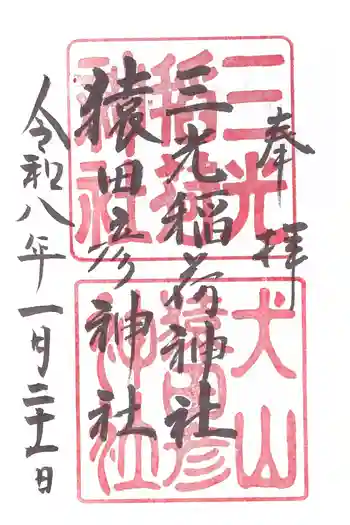 奉拝
三光稲荷神社
猿田彦神社
令和八年一月二十一日
三光稲荷神社
犬山猿田彦神社